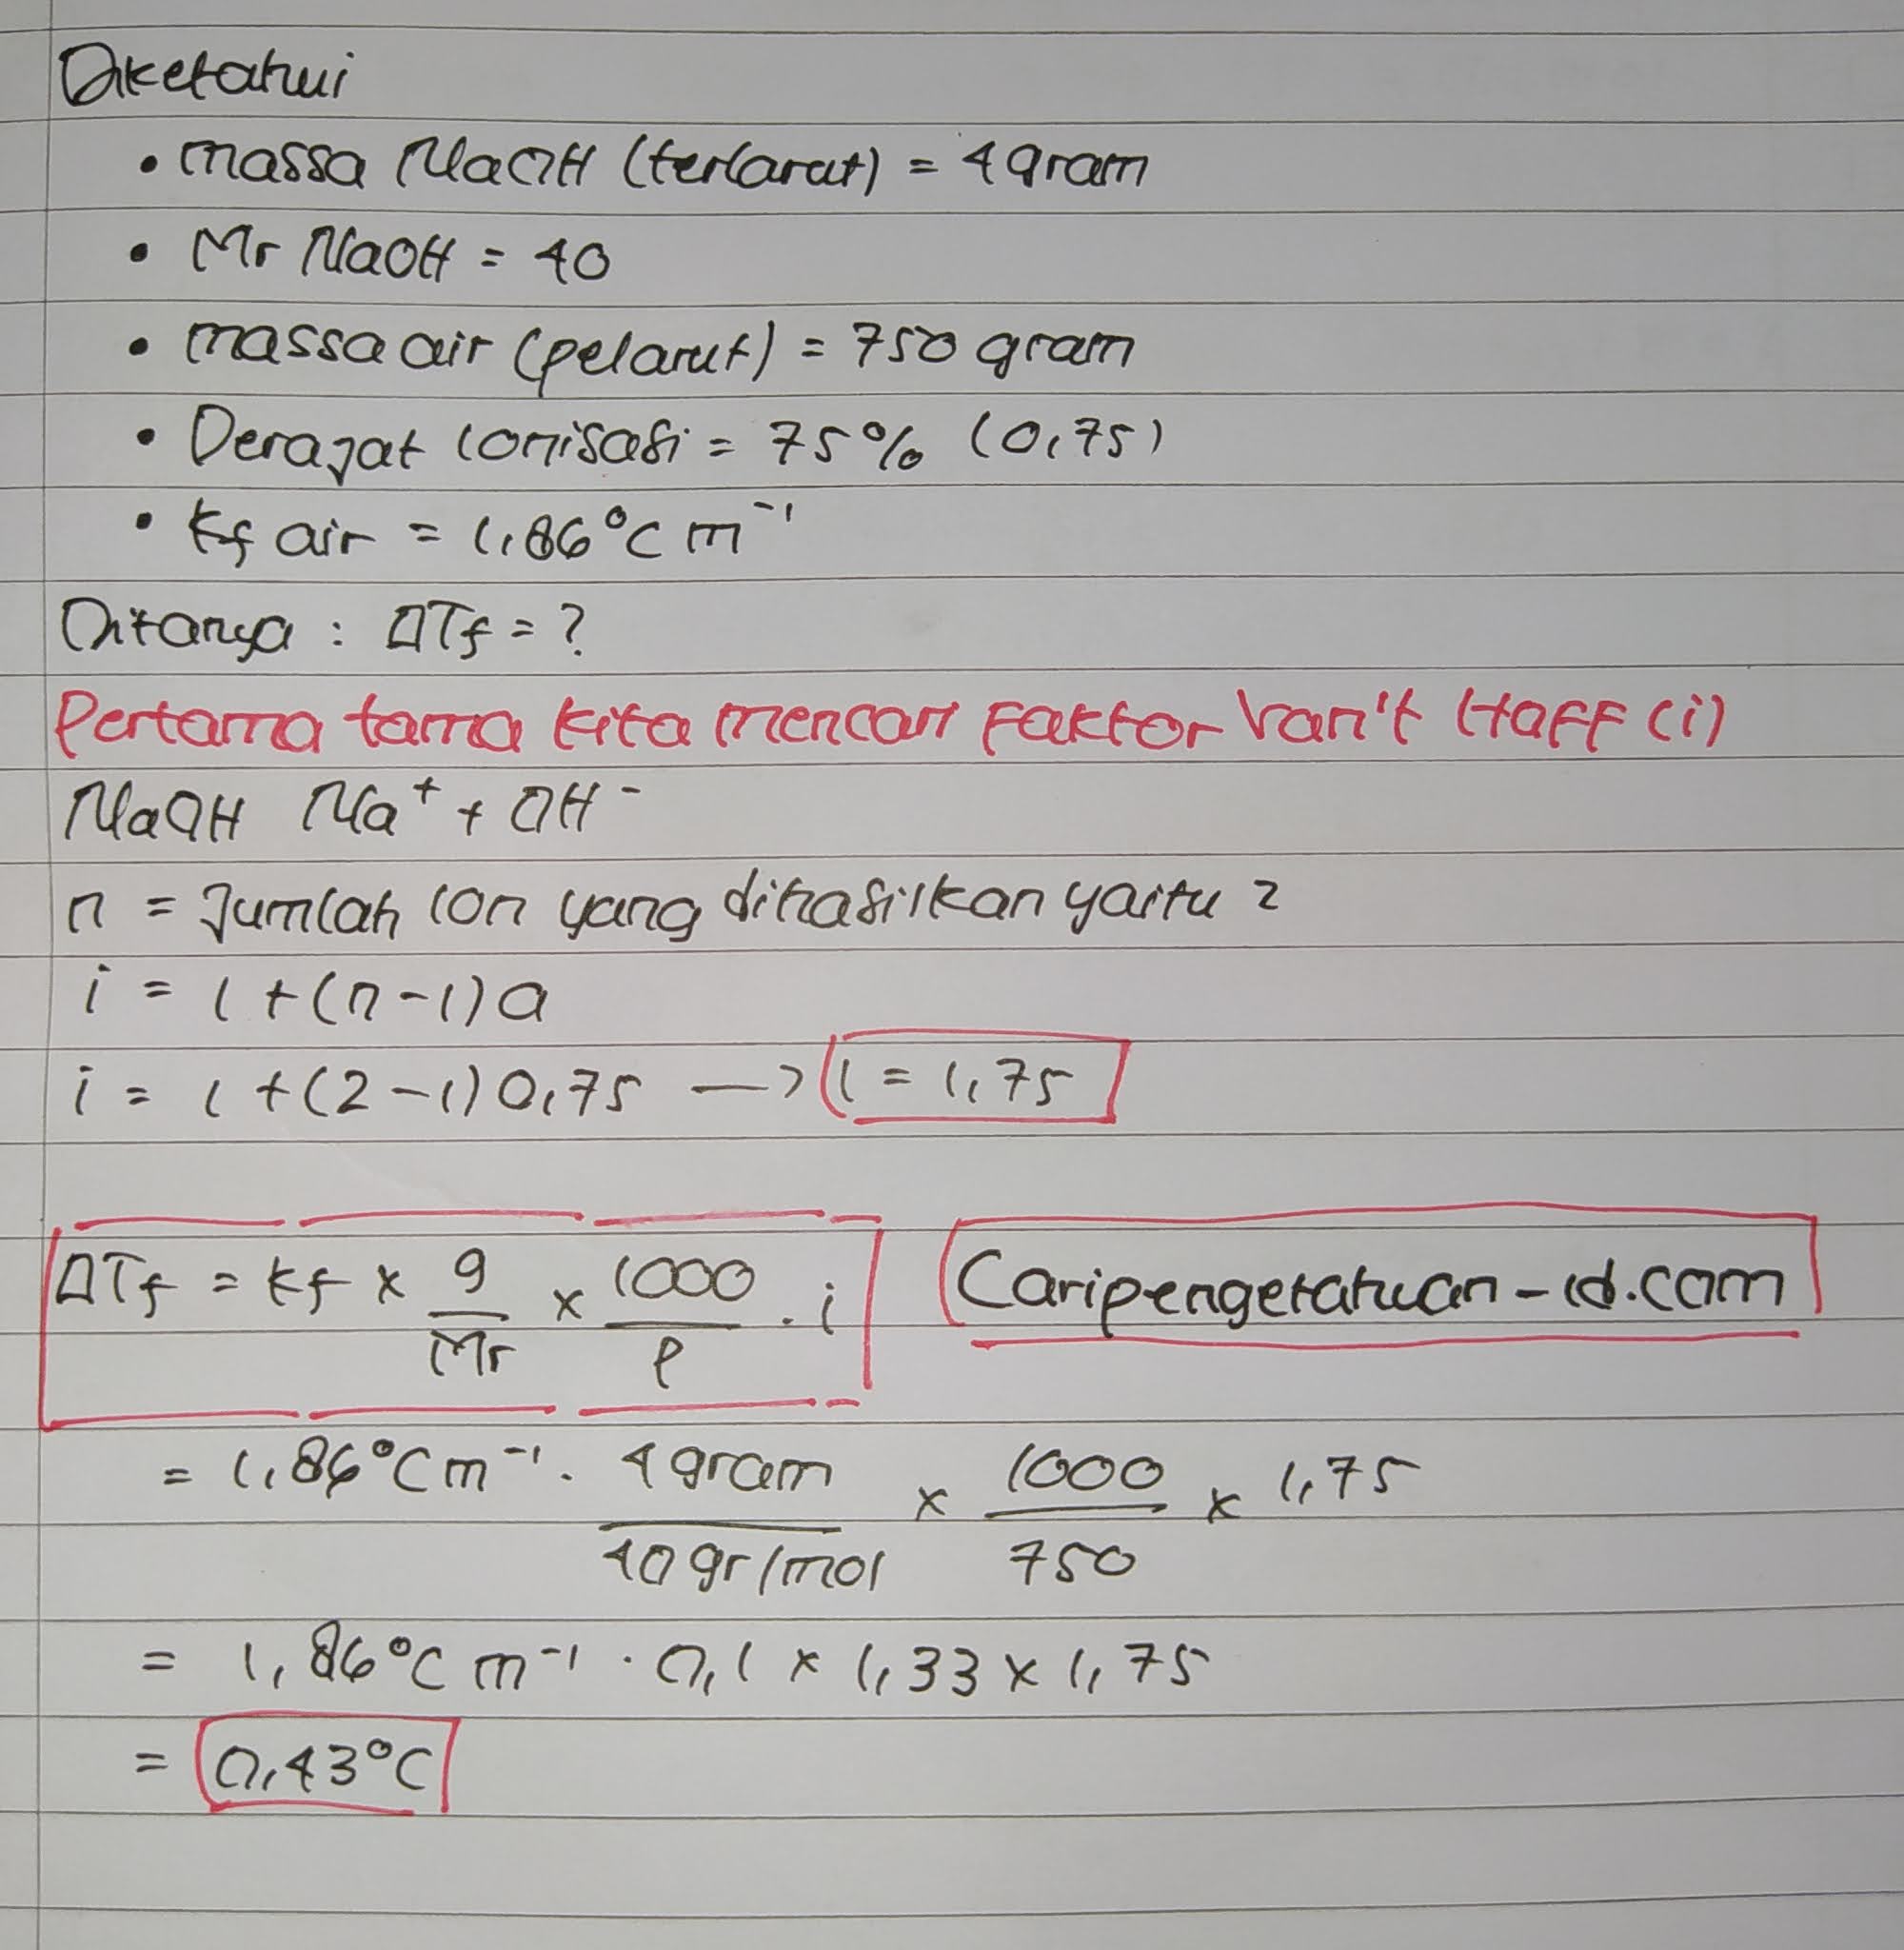 Diketahui
• massa NaOH (terlarut) = 4 gram
• Mr NaOH = 40
• massa air (pelarut) = 750 gram
• Derajat ionisasi = 75% (0,75)
• Kf air = 1,86°C m⁻¹
Ditanya : ΔTf = ?
Pertama tama kita mencari Faktor Van't Haff (i)
NaOH Na⁺ + OH⁻
n = Jumlah ion yang dihasilkan yaitu 2
i = 1 + (n-1) a
i = 1 + (2-1) 0,75 → i = 1,75
ΔTf = Kf x g/Mr x 1000/P . i
Caripengetahuan-id.com
= 1,86°C m⁻¹ . 4 gram/40 gr/mol x 1000/750 x 1,75
= 1,86°C m⁻¹ . 0,1 x 1,33 x 1,75
= 0,43°C